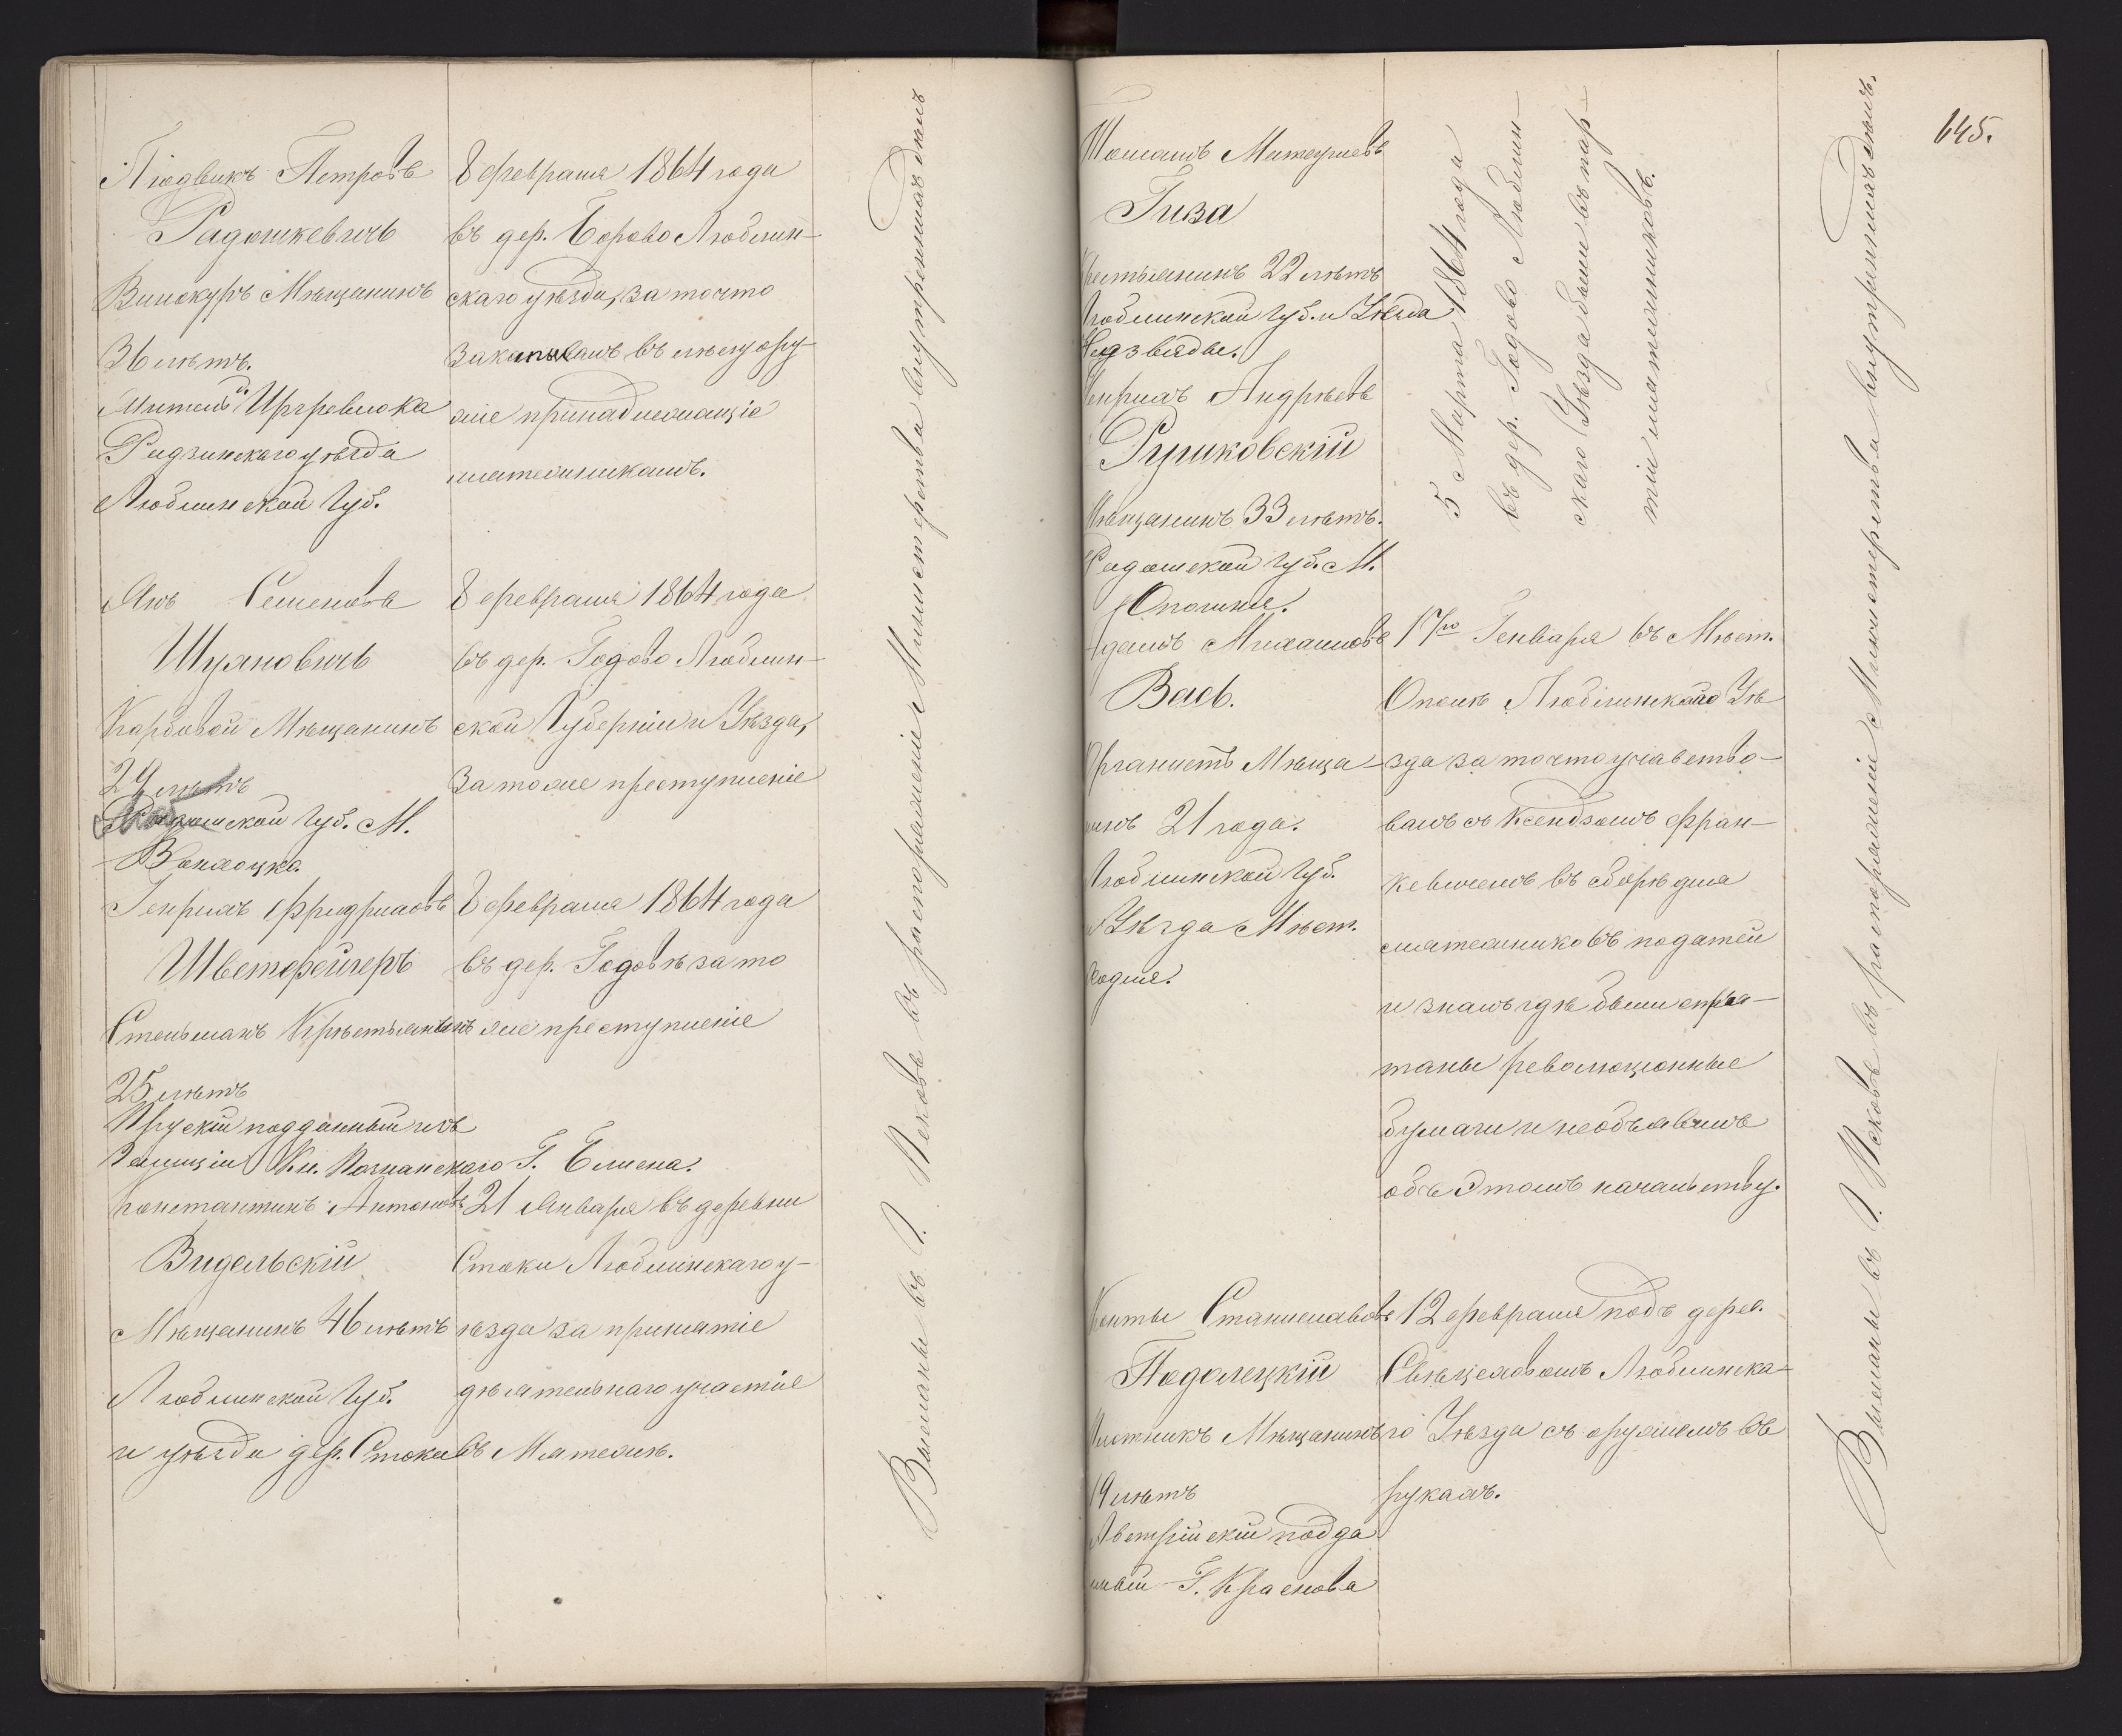 Людвикъ Петровъ
Радошкевичъ
Винокуръ Мѣщанинъ
36 лѣтъ.
Житель
Радзинскаго уѣзда
Люблинской Губ.
8 февраля 1864 года
въ дер. Борово Люблин-
скаго уѣзда, за то что
закапывалъ въ лѣсу ору-
жіе принадлежащіе
мятежникамъ.
Янъ Семеновъ
Шуяновичъ
Карбовой Мѣщанинъ
29 лѣтъ
Радомской Губ. М.
Вонхоцка.
8 февраля 1864 года
въ дер. Годово Люблин-
ской Губерніи и Уѣзда,
за тоже преступленіе
Генрихъ Фридриховъ
Шветфейгеръ
Стельмахъ Крѣстьянинъ
25 лѣтъ
Прускій подданный изъ
Галиціи Кн. Познанскаго Г.
8 февраля 1864 года
въ дер. Годовѣ за то
же преступленіе
Константинъ Антоновъ
Видельскій
Мѣщанинъ 46 лѣтъ
Люблинской Губ.
и уѣзда дер. Стоки
21 Января въ деревни
Стоки Люблинскаго у-
ѣзда за принятіе
дѣятельнаго участіе
въ Мятежѣ.
Высланы въ Г. Псковъ въ распоряженіе Министерства внутреннихъ дѣлъ
645.
Томашъ Матеушевъ
Гиза
Крестьянинъ 22 лѣтъ
Люблинской Губ. и Уѣзда
Генрихъ Андрѣевъ
Рушковскій
Мѣщанинъ 33 лѣтъ.
Радомской Губ. М.
Опочня.
5 Марта 1864 года
въ дер. Годово Люблин-
скаго Уѣзда были въ пар-
тіи мятежниковъ.
Адамъ Михаиловъ
Вась.
Органистъ Мѣща-
нинъ 21 года.
Люблинской Губ.
и Уѣзда Мѣст.
Ходле.
17го Генваря въ Мѣст.
Ополѣ Люблинскаго Уѣ
зда за то что участво-
валъ съ Ксендзомъ Фран-
кевичемъ въ сборѣ для
мятежниковъ податей
и зналъ гдѣ были спря-
таны революціонные
бумаги и необъявилъ
объ Этомъ начальству.
Канты Станиславовъ
Подолецкій
Мѣщанинъ
19 лѣтъ
Австрійскій подда
нный Г. Кракова
12 февраля подъ дерев.
Люблинска-
го Уѣзда съ оружіемъ въ
рукахъ.
Высланы въ Г. Псковъ въ распоряженіе Министерства внутреннихъ дѣлъ.